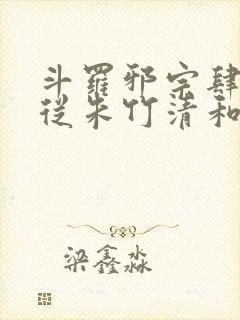 斗羅邪宗肆
從朱竹清和
梁鑫淼